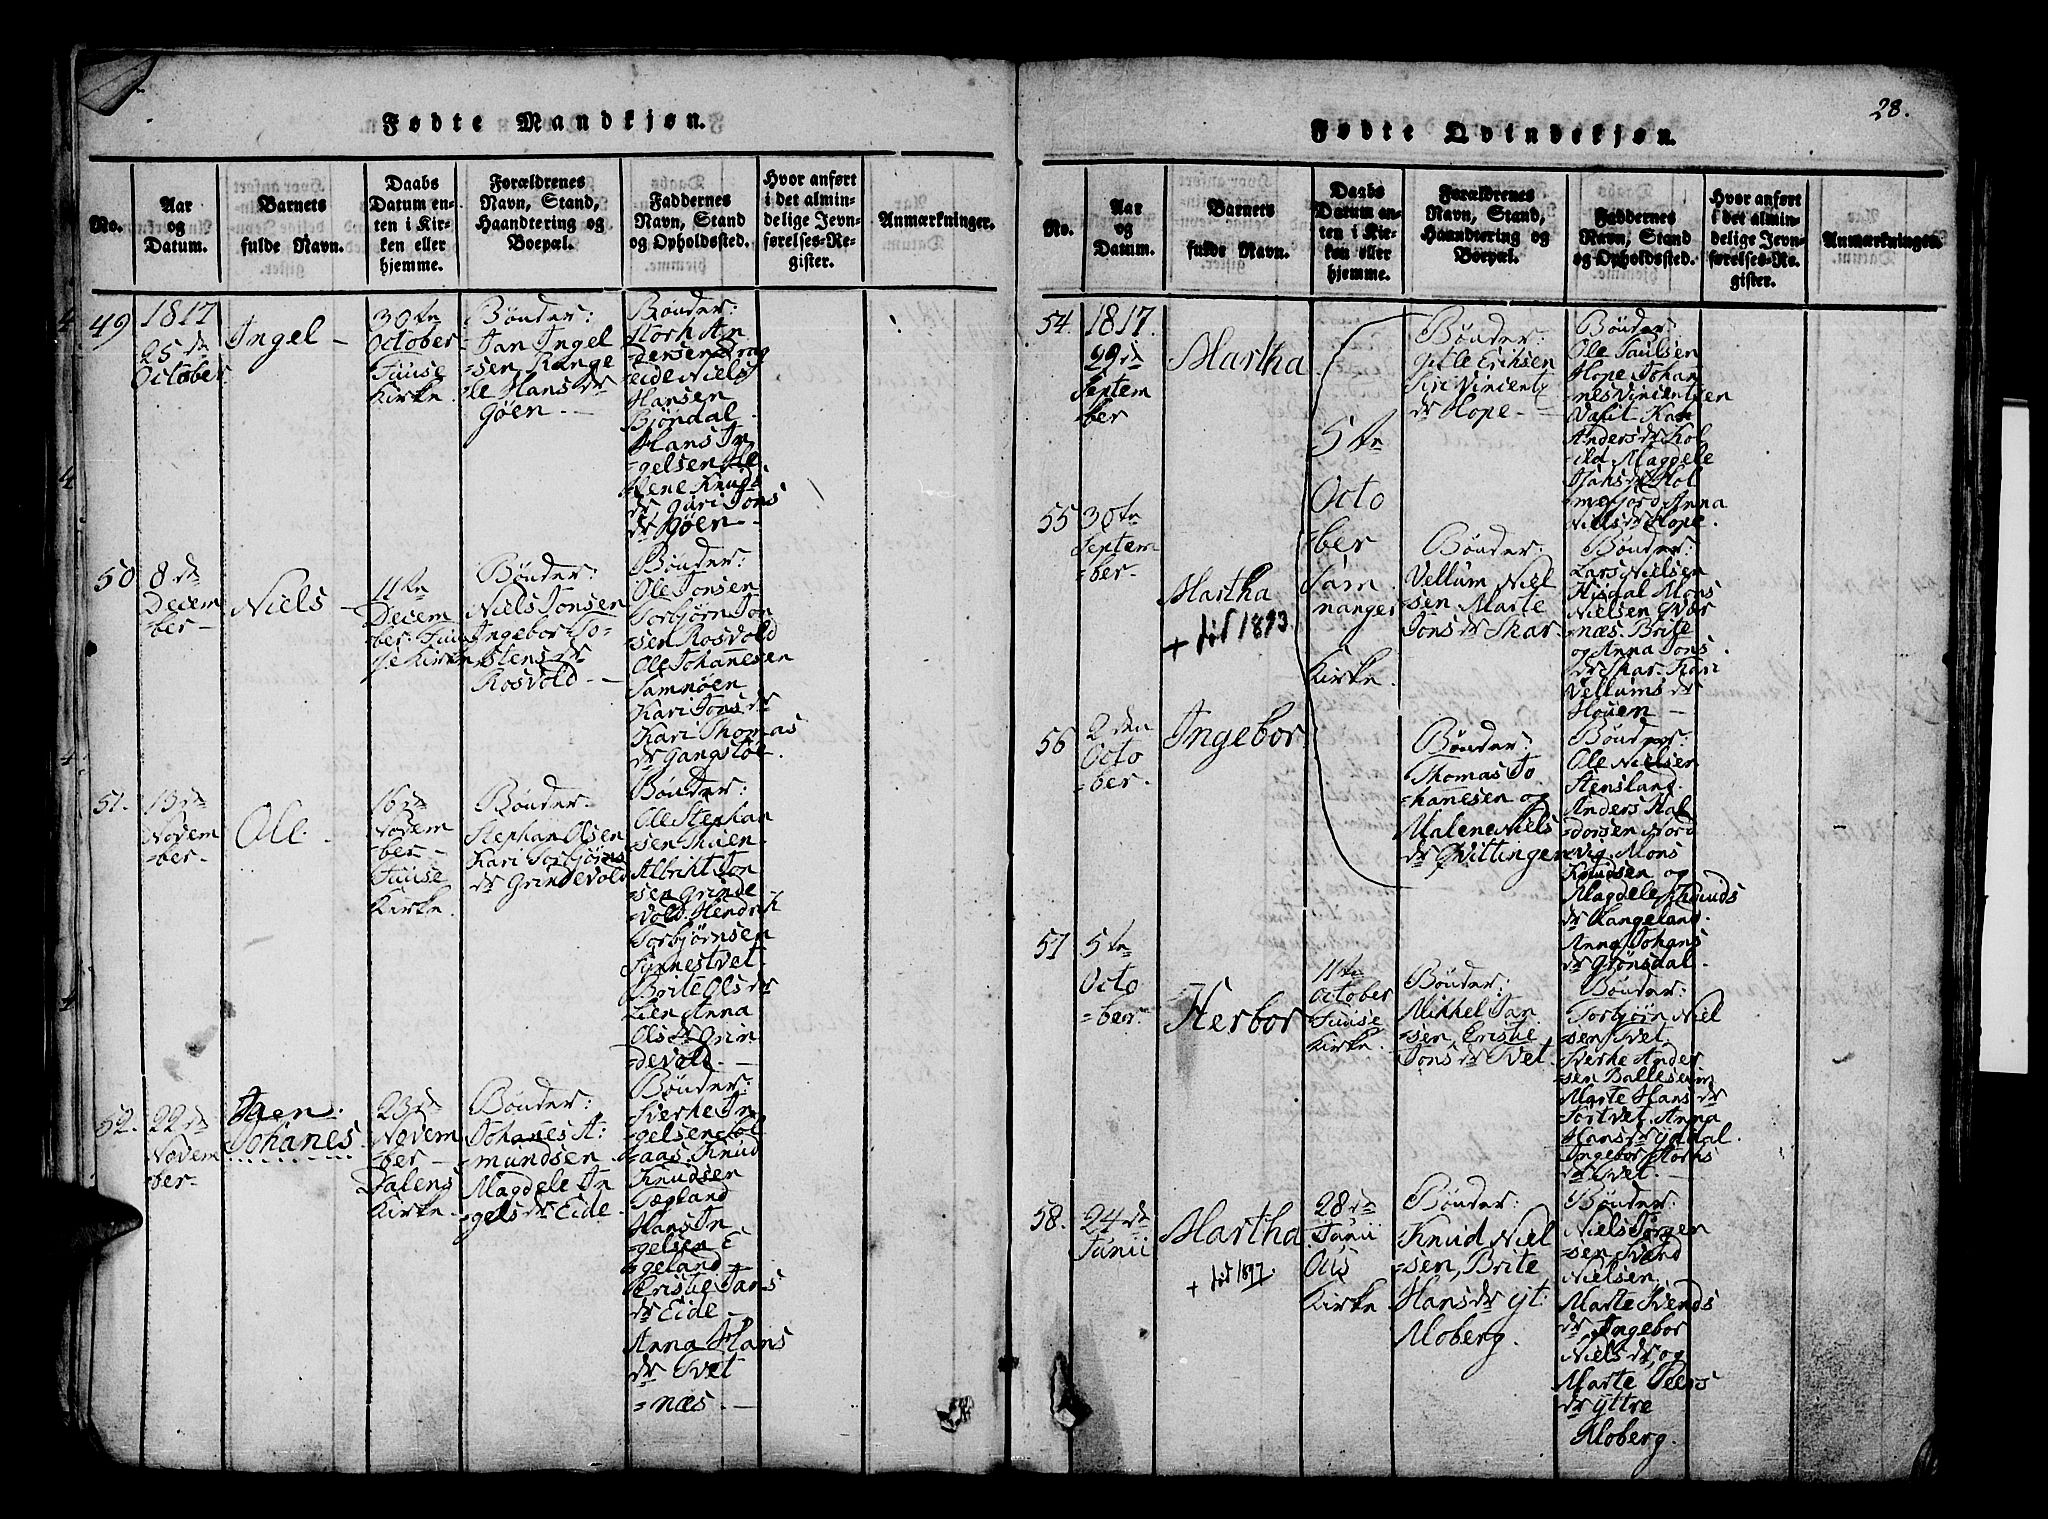 Fødte Mandkjøn.
No.
Aar
og
Datum.
Barnets
fulde Navn.
Daabs
Datum en-
ten i Kir-
ken eller
hjemme.
Forældrenes
Navn, Stand,
Haandtering og
Boepæl.
Faddernes
Navn, Stand
og Opholdssted.
Hvor anført
i det almin-
delige Jevn-
førelses-Re-
gister.
Anmærkninger.
49
1817
25de
October
Ingel
30te
October
Fuuse
Kirke
Bønder:
Jan Ingel
=sen, Range
le Hansdr
Gøen.
Bønder:
Storh An
dersen Drag
=eide Niels
Hansen
Bjöndal
Hans In
=gelsen He
lene Knuds
dr, Guri Jons
dr Gøen
50
8de
Decem
=ber
Niels
11te
Decem
=ber: Fuu
se Kirke
Bønder:
Niels Jonsen
Ingebor To=
stens dr
Rosvold
Bønder:
Ole Jonsen
Torbjørn Jon
=sen Rosvold
Ole Johannesen
Samnøen
Kari Jons dr
Kari Thomas
dr Gangstöe.
51.
13de
Novem
=ber
Ole.
16de
Novem
=ber
Fuuse
Kirke.
Bønder:
Stephan Olsen
Kari Torbjørns
dr Grindevold
Bønder:
Ole Stephan
sen Thuen.
Albricht Jon
=sen Grinde
vold. Hendrich
Torbjørnsen
Synnestvet
Brite Ols dr
Lien Anna
Ols dr Grin
=devold.
52.
22de
Novem
ber
Johanes
23de
Novem
=ber
Ja͏lens
Kirke.
Bønder:
Johanes A=
mundsen.
Magdele In
=gels dr Eide.
Bønder:
Sverke In
=gelsen Høl
=aas. Knud
Knudsen
Tægland
Hans In
=gelsen E
geland
Kristie Jans
dr Eide
Anna Hans
dr Tvet
=næs.
28.
Fødte Qvindekjøn.
No.
Aar
og
Datum.
Barnets
fulde Navn.
Daabs
Datum en-
ten i Kir-
ken eller
hjemme.
Forældrenes
Navn, Stand,
Haandtering og
Boepæl.
Faddernes
Navn, Stand
og Opholdssted.
Hvor anført
i det almin-
delige Jevn-
førelses-Re-
gister.
Anmærkninger.
54.
1817.
29de
Septem
ber
Martha
5te
Octo
ber
Kirke.
Bønder:
Gitle Erichsen
Siri Vincentz
dr Hope
Bønder:
Ole Paulsen
Hope Johan
=nes Vincentsen
Anders dr Kol
Magdele
Jans dr Hol
mefjord Anna
Niels dr Hope.
55
30te
Septem
=ber.
Martha
+ død 1893.
Bønder:
Vellum Niel
sen Marte
Jons dr Skar.
Bønder:
Lars Nielsen
Hisdal Mons
Nielsen Qvær
næs. Brite
og Anna Jons
dr Skar. Kari
Vellums dr
Houem
56
2den
Octo
=ber.
Ingebor
Bønder:
Thomas Jo
=hanesen og
Malene Niels
dr Qvittingen
Bønder:
Ole Nielsen
Stensland.
Anders Hal
dorsen Nord
=vig. Mons
Knudsen og
Magdele Knuds
dr Hangeland.
Anna Johans
dr Grönsdal.
57
5te
Octo
=ber.
Herbor
11te
October
Fuuse
Kirke.
Bønder:
Mikkel Jan
=sen, Kristie
Jons dr Tvet.
Bønder:
Torbjørn Niel
=sen Tvet,
Sverke Ander
sen Balleseim
Marte Hans dr
Tortvet. Anna
Hans dr Yddal.
Ingebor Storhs
dr Tvet.
58.
24de
Junii
Martha
+ død 1877.
28de
Junii
Ous
Kirke.
Bønder:
Knud Niel
=sen, Brite
Hans dr Yt:
Moberg.
Bønder:
Niels Jørgen
=sen Svend
Nielsen,
Marte Svends
dr, Ingebor
Niels dr, og
Marte Peers
dr Yttre
Moberg.